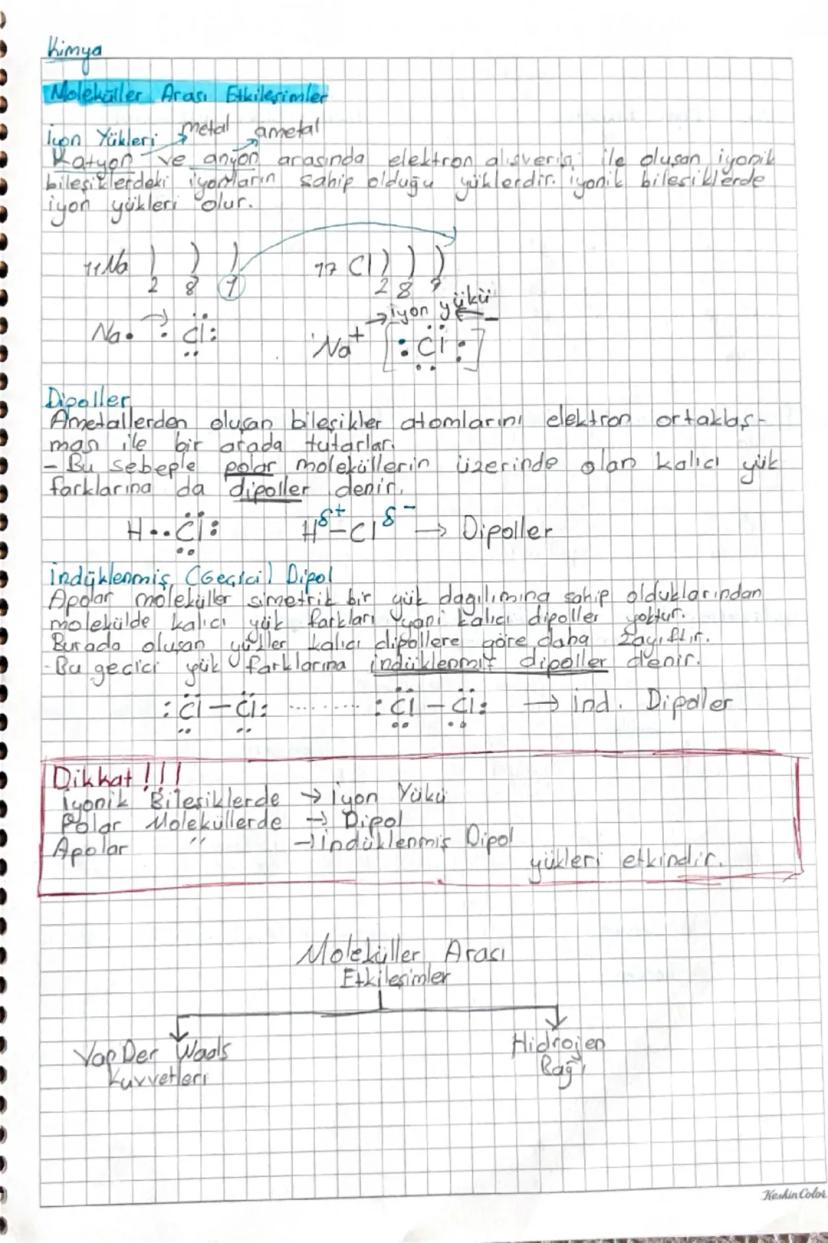 Kimya
Moleküller Arası Etkileşimler
İyon Yükleri metal ametal
Katyon ve anyon arasında elektron alışverişi ile oluşan iyonik
bileşiklerdeki iyonların sahip olduğu yüklerdir. iyonik bileşiklerde
iyon yükleri olur.
11Na ) ) ) 17 Cl ) ) )
2 8 1 2 8 7
→iyon yükü
Na• → :Cl: Na+ [:Cl:]-
Dipoller
Ametallerden oluşan bileşikler atomlarını elektron ortaklaş-
ması ile bir arada tutarlar.
- Bu sebeple polar moleküllerin üzerinde olan kalıcı yük
farklarına da dipoller denir.
H••Cl: Hδ+—Clδ- → Dipoller
İndüklenmiş (Geçici) Dipol
Apolar moleküller simetrik bir yük dağılımına sahip olduklarından
molekülde kalıcı yük farkları yani kalıcı dipoller yoktur.
Burada oluşan yükler kalıcı dipollere göre daha zayıftır.
- Bu geçici yük farklarına indüklenmiş dipoller denir.
:Cl—Cl: ........ :Cl—Cl: → ind. Dipoller
Dikkat !!!
İyonik Bileşiklerde → İyon Yükü
Polar Moleküllerde → Dipol
Apolar " → İndüklenmiş Dipol
yükleri etkindir.
Moleküller Arası
Etkileşimler
Van Der Waals
Kuvvetleri
Hidrojen
Bağı
Keskin Color